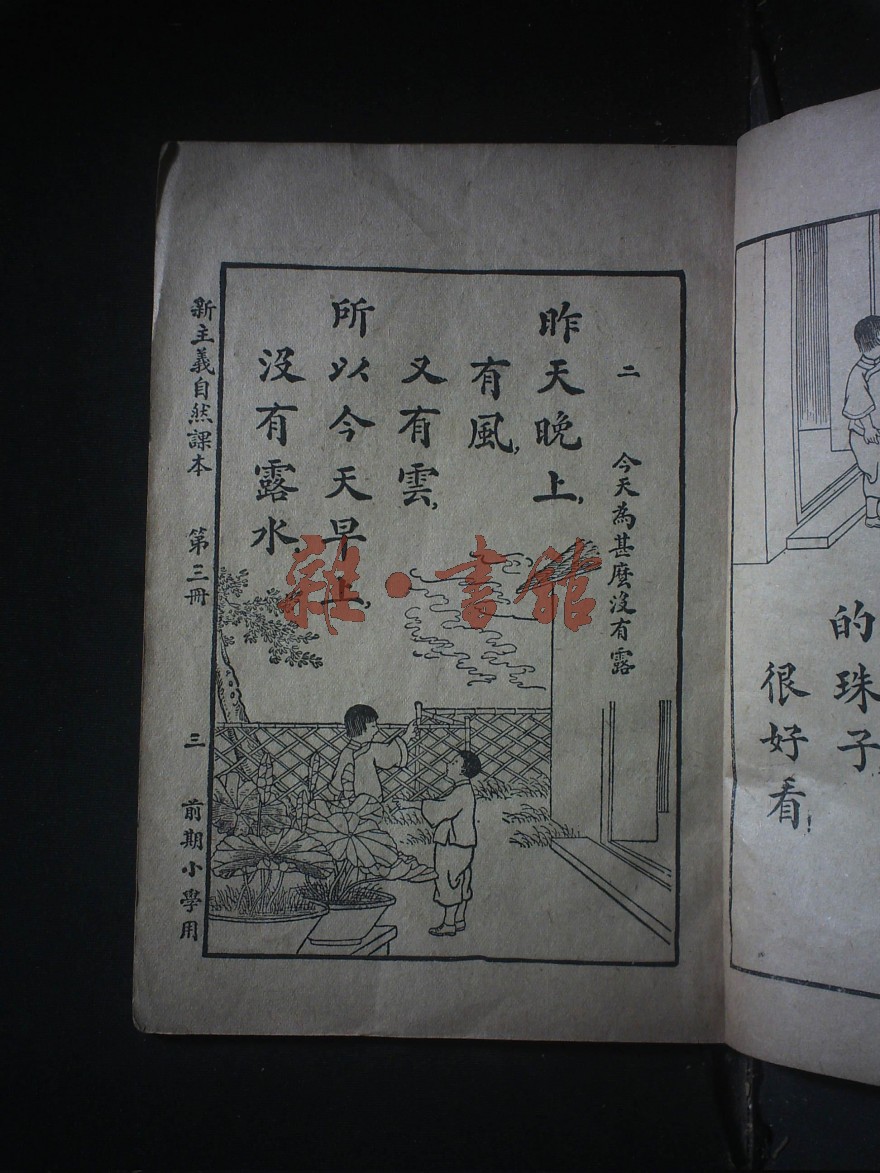 的珠子
很好看！
二　今天為甚麼沒有露
昨天晚上，
有風，
又有雲，
所以今天早上，
沒有露水。
新主義自然課本　第三冊　三　前期小學用
雜·書館